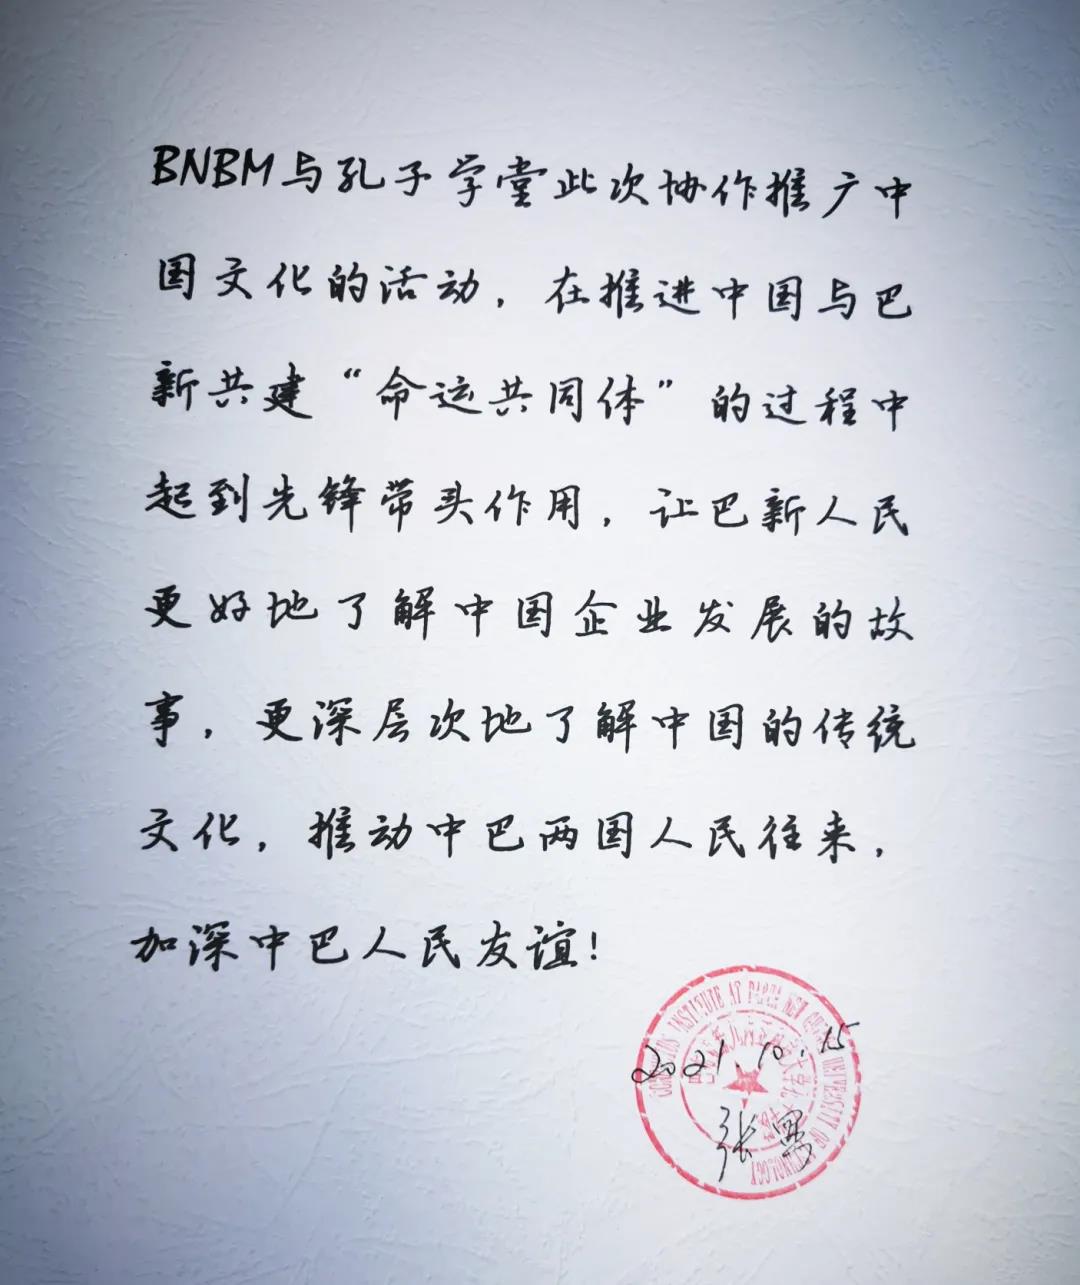 BNBM与孔子学堂此次协作推广中
国文化的活动，在推进中国与巴
新共建“命运共同体”的过程中
起到先锋带头作用，让巴新人民
更好地了解中国企业发展的故
事，更深层次地了解中国的传统
文化，推动中巴两国人民往来，
加深中巴人民友谊！
CONFUCIUS INSTITUTE AT PAPUA NEW GUINEA UNIVERSITY OF TECHNOLOGY
2021.10.15
张